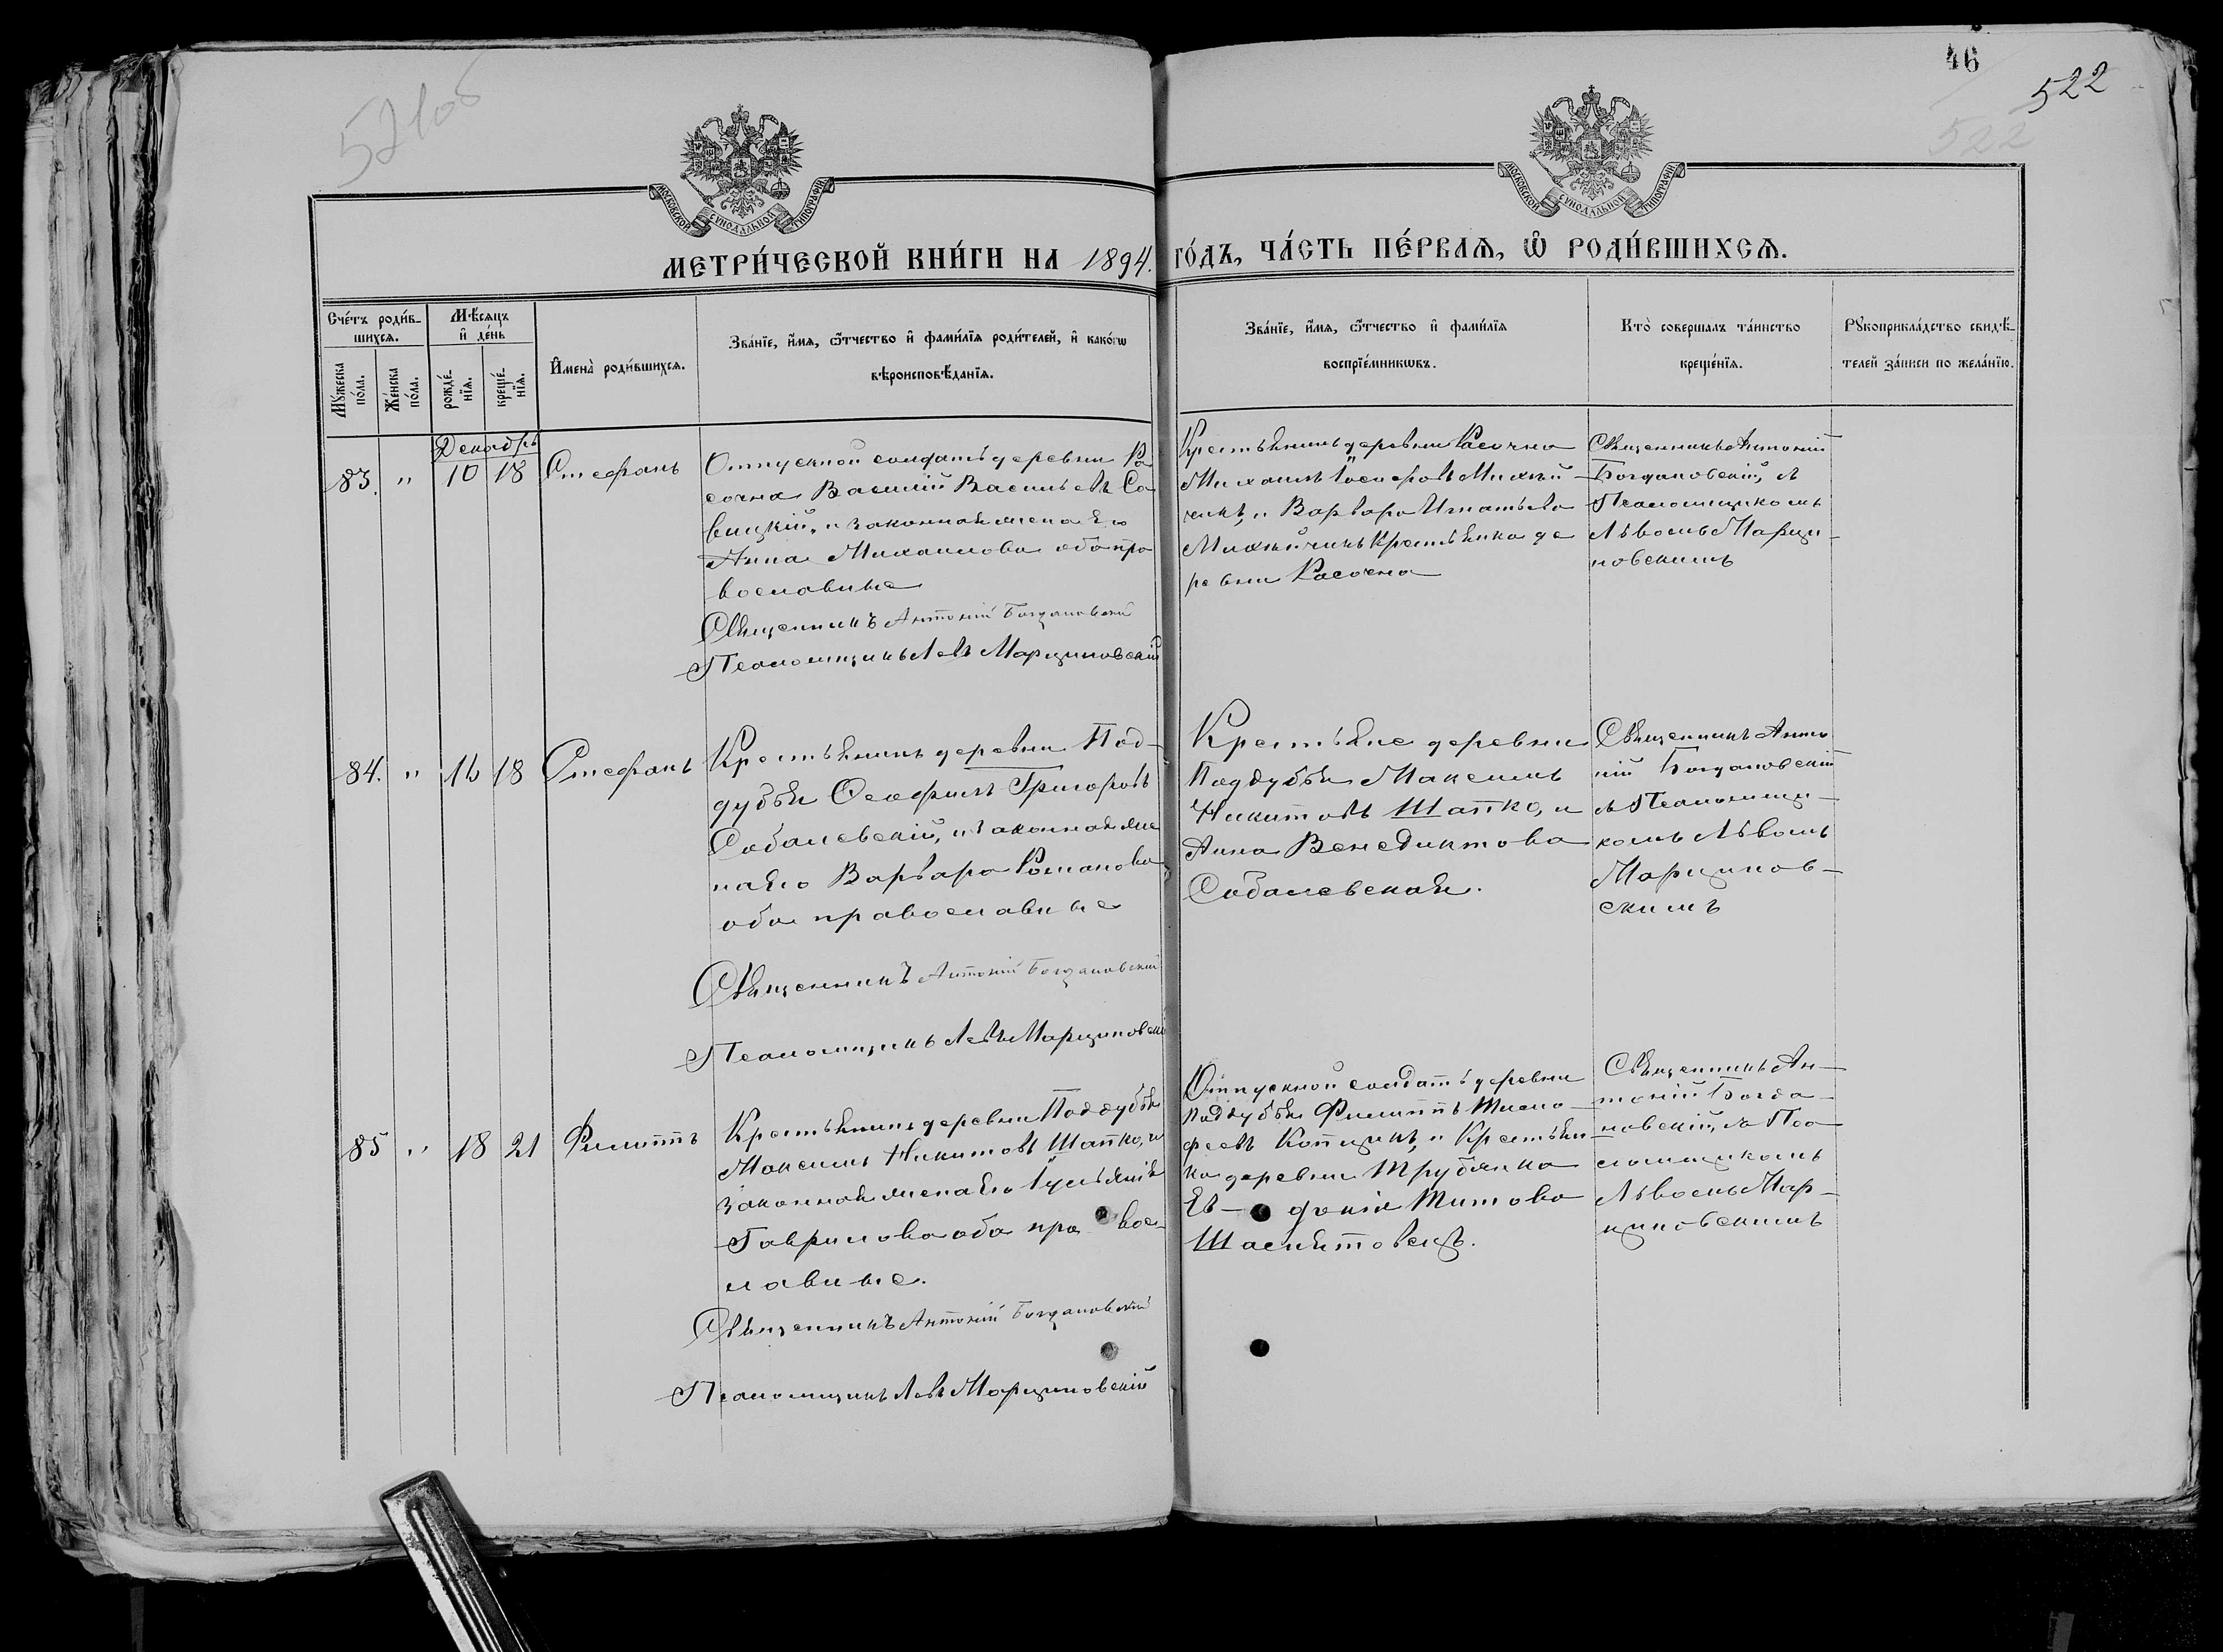 46
522
522
521об
МОСКОВСКОЙ СУНОДАЛЬНОЙ ТИПОГРАФІИ
МОСКОВСКОЙ СУНОДАЛЬНОЙ ТИПОГРАФІИ
МЕТРИ́ЧЕСКОЙ КНИ́ГИ НА 1894. ГО́ДЪ, ЧА́СТЬ ПЕ́РВАЯ, Ѿ РОДИ́ВШИХСѦ.
Сче́тъ роди́в-
шихсѧ.
Мꙋ́жеска
по́ла.
Же́нска
по́ла.
Мѣ́сяцъ
и҆ де́нь
рожде́-
нїѧ.
креще́-
нїѧ.
И҆мена̀ роди́вшихсѧ.
Зва́нїе, и҆́мѧ, ѻ҆́тчество и҆ фами́лїѧ роди́телей, и҆ како́гѡ
вѣроисповѣ́данїѧ.
Зва́нїе, и҆́мѧ, ѻ҆́тчество и҆ фами́лїѧ
воспрїе́мникѡвъ.
Кто̀ соверша́лъ та́инство
креще́нїѧ.
Рꙋкоприкла́дство свидѣ́-
телей за́писи по жела́нїю.
Декабрь
83. " 10 18 Стефанъ
Отпускной солдатъ деревни Ра
сочна Василій Васильевъ Са
вицкій, и законная жена его
Анна Михаилова оба пра
вославные
Священникъ Антоній Богдановскій
Псаломщикъ Левъ Марциновскій
Крестьянинъ деревни Расочна
Михаилъ Іосифовъ Михній
чикъ, и Варвара Игнатьева
Михнійчикъ крестьянка де
ревни Расочна
Священникъ Антоній
Богдановскій, съ
Псаломщикомъ
Львомъ Марци-
новскимъ
84. " 16 18 Стефанъ
Крестьянинъ деревни Под-
дубья Феофилъ Григоровъ
Собалевскій, и законная же
на его Варвара Романова
оба православные
Священникъ Антоній Богдановскій
Псаломщикъ Левъ Марциновскій
Крестьяне деревни
Поддубья Максимъ
Никитовъ Шапко, и
Анна Венедиктова
Собалевская.
Священникъ Анто
ній Богдановскій
съ Псаломщи-
комъ Львомъ
Марцинов-
скимъ
85 " 18 21 Филиппъ
Крестьянинъ деревни Поддубья
Максимъ Никитовъ Шапко, и
законная жена его Іульянія
Гаврилова оба пра вос-
лавные.
Священникъ Антоній Богдановскій
Псаломщикъ Левъ Марциновскій
Отпускной солдатъ деревни
Поддубья Филиппъ Тимо-
феевъ Копцикъ, и крестьян
ка деревни Трубянка
Ев- докія Титова
Священникъ Ан-
тоній Богда-
новскій, съ Пса
ломщикомъ
Львомъ Мар-
циновскимъ